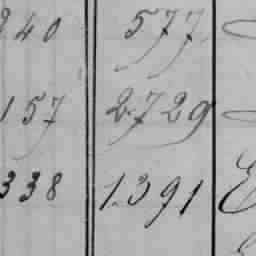 240 577
157 2.729
338 1.391